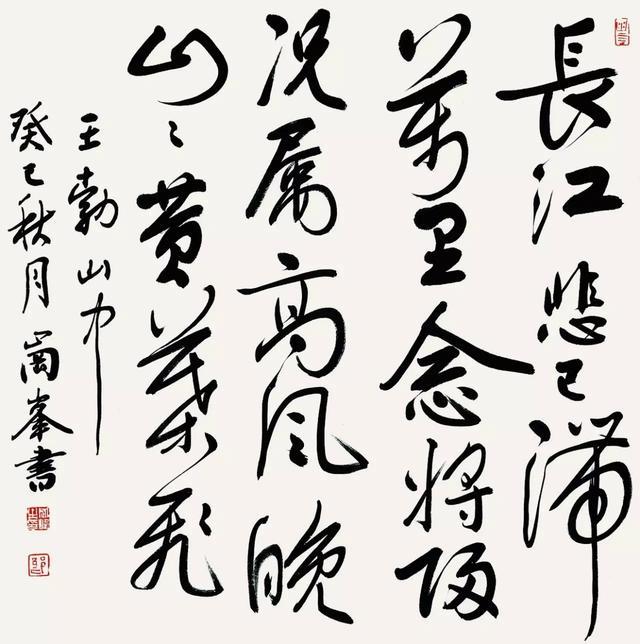 長江悲已滞
萬里念将歸
況属高風晚
山〻黄葉飛
王勃山中
癸巳秋月崗峯書